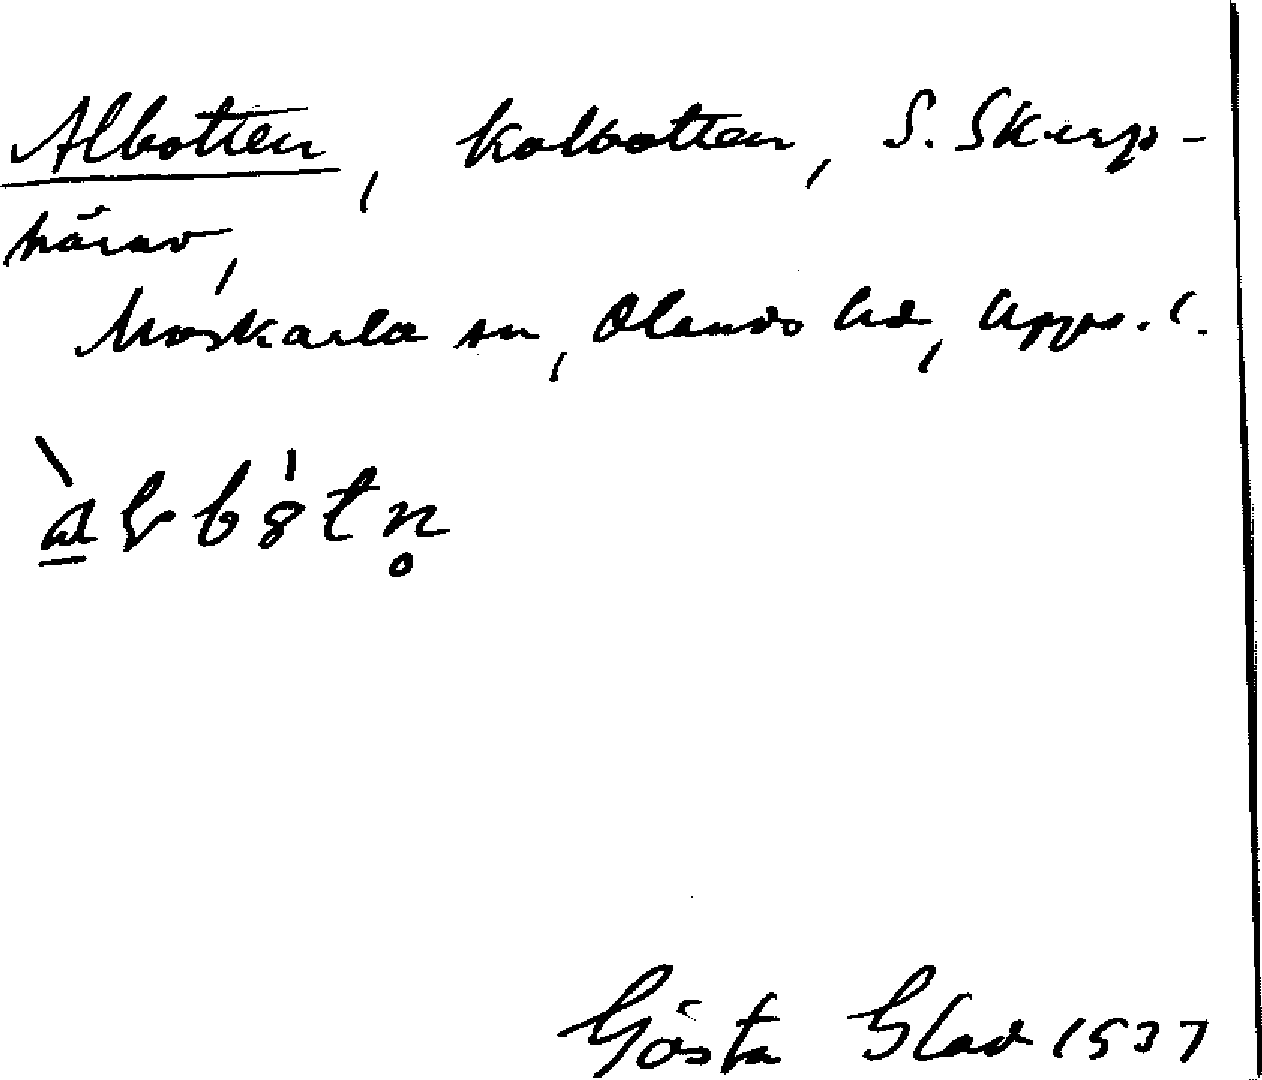 Albotten, kolbotten, S. Skerp-
härad,
Morkarla sn, Olands hd, Uppl.
Gösta Glad 1937